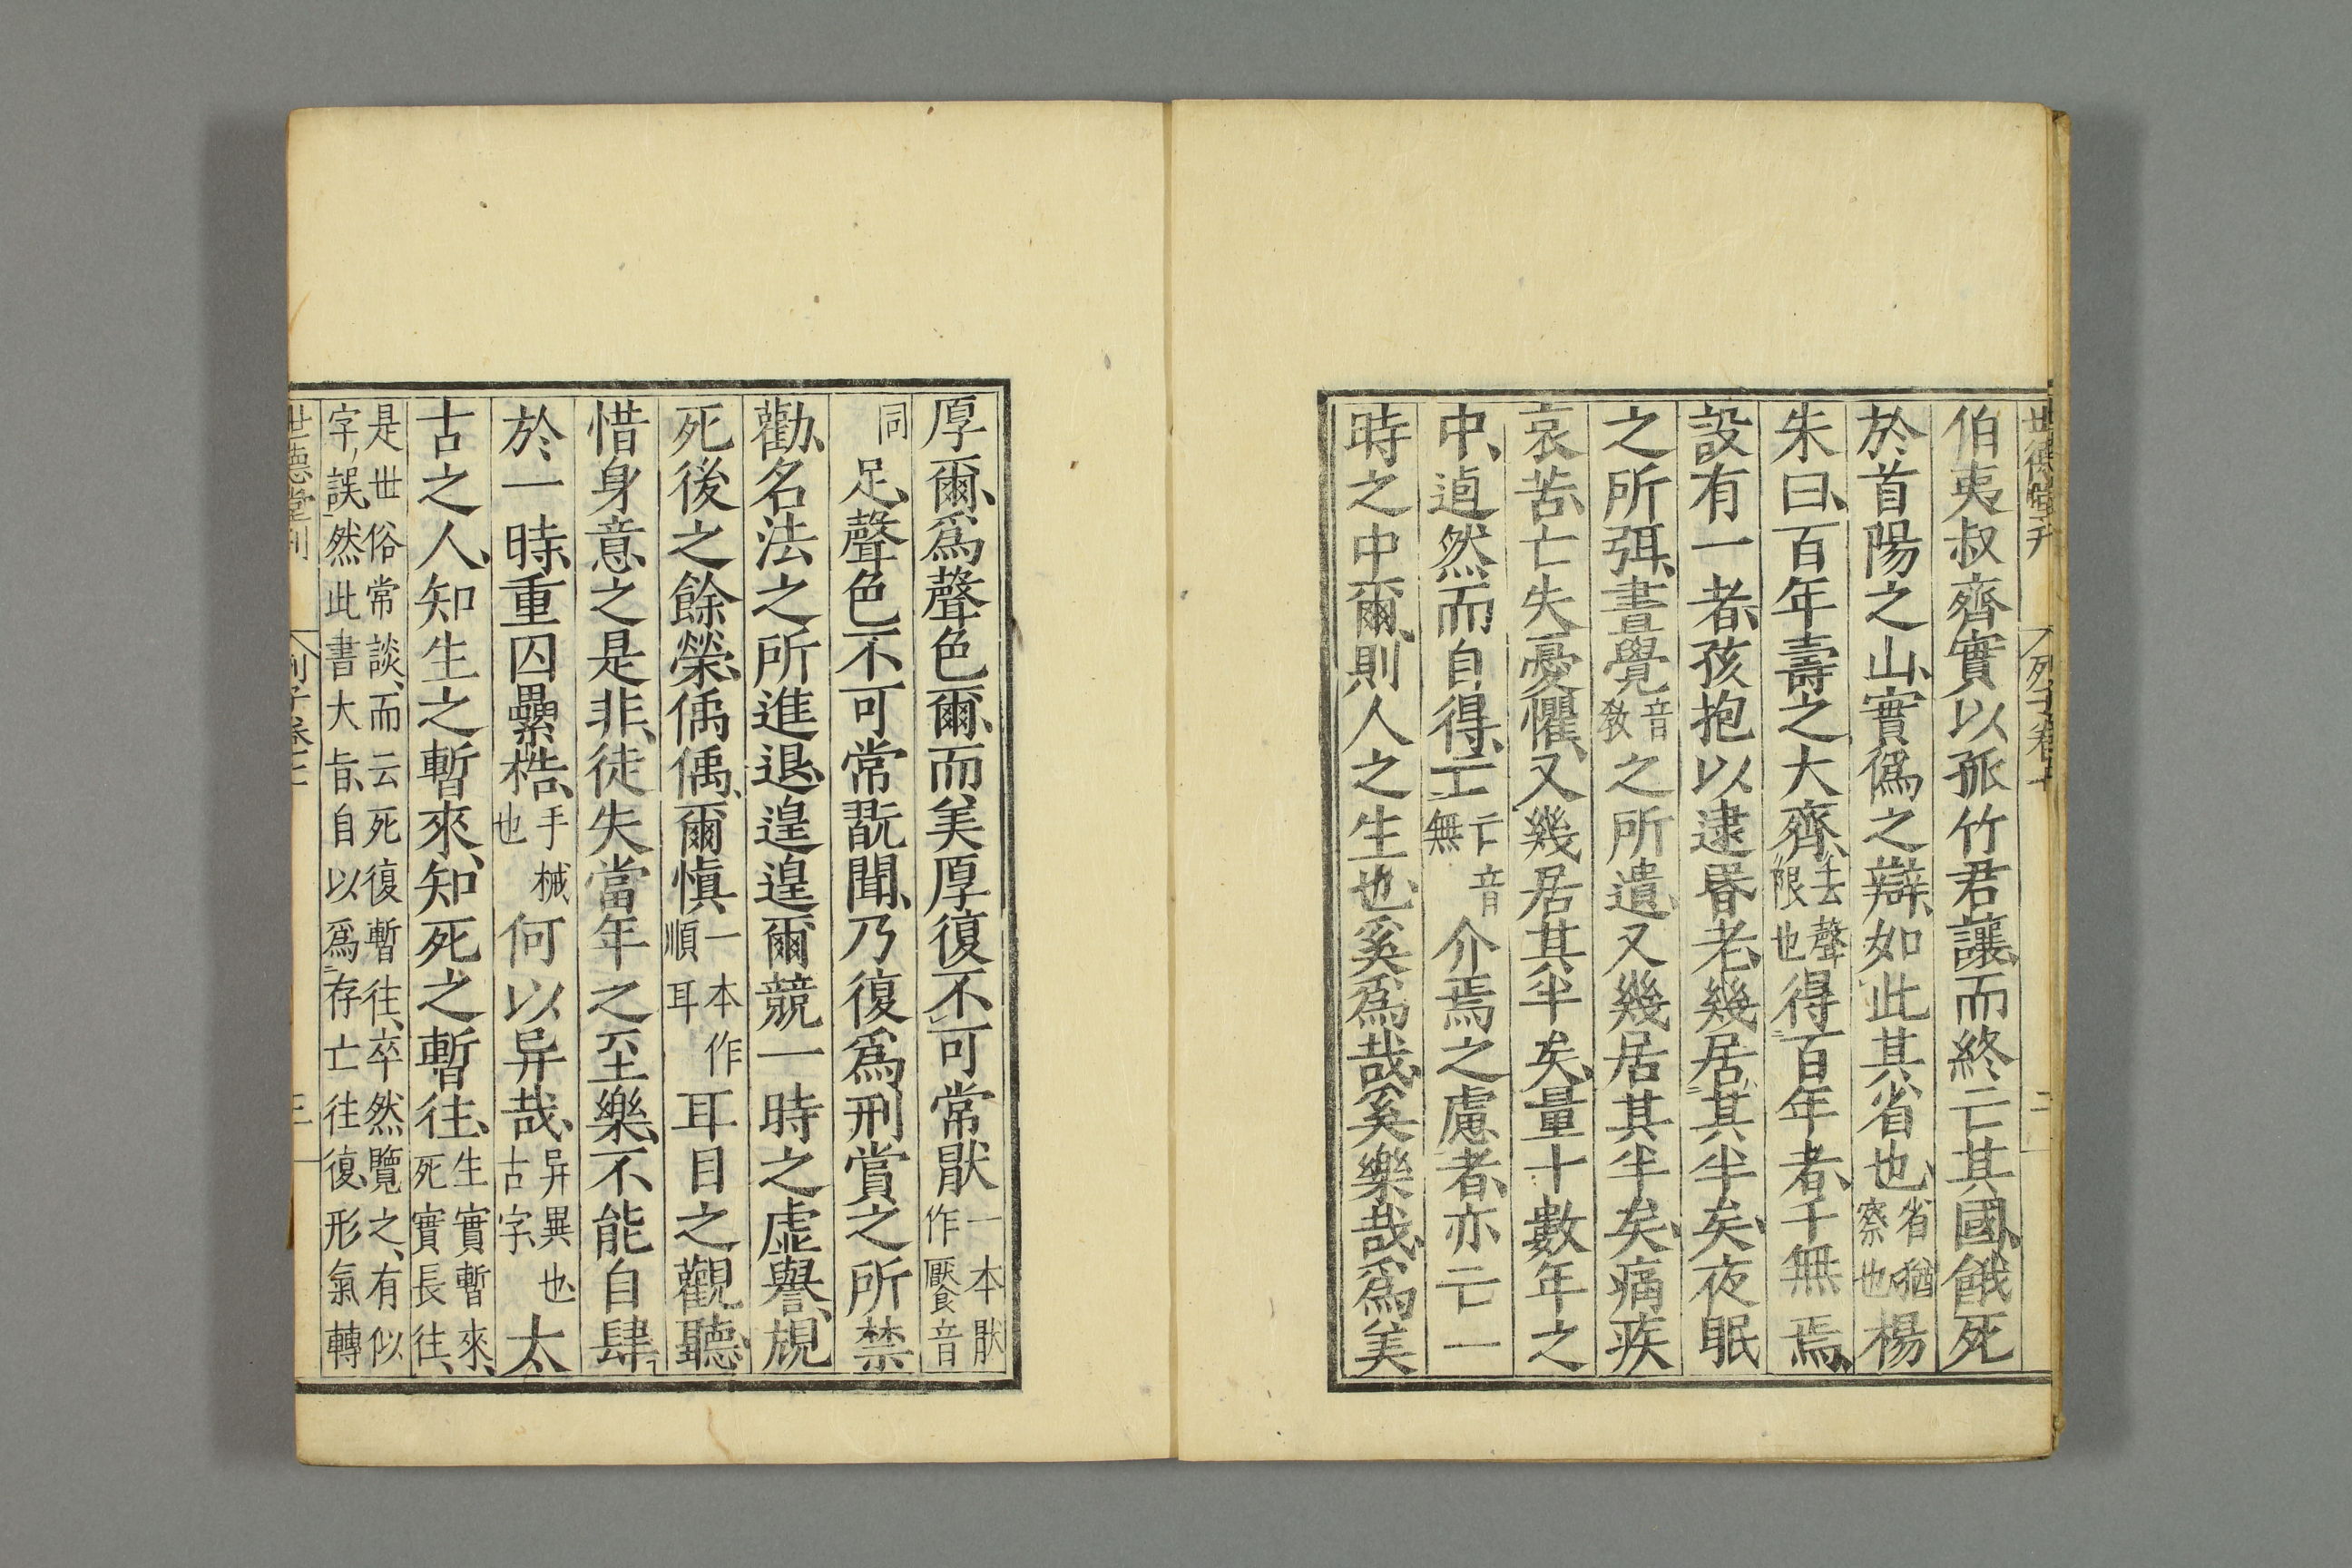 世德堂刊 列子卷七 二
伯夷叔齊實以孤竹君讓而終亡其國餓死
於首陽之山實僞之辯如此其省也省猶察也楊
朱曰百年壽之大齊去聲限也得百年者千無一焉
設有一者孩抱以逮昬老幾居其半矣夜眠
之所弭晝覺音敎之所遺又幾居其半矣痛疾
哀苦亡失憂懼又幾居其半矣量十數年之
中逌然而自得亡亡音無介焉之慮者亦亡一
時之中爾則人之生也奚爲哉奚樂哉爲美
厚爾爲聲色爾而美厚復不可常猒一本猒作饜音
同足聲色不可常翫聞乃復爲刑賞之所禁
勸名法之所進退遑遑爾競一時之虛譽規
死後之餘榮偊偊爾愼一本作順耳耳目之觀聽
惜身意之是非徒失當年之至樂不能自肆
於一時重囚纍梏手械也何以异哉异異也古字太
古之人知生之暫來知死之暫往生實暫來死實長往
是世俗常談而云死復暫往卒然覽之有似
字誤然此書大旨自以爲存亡往復形氣轉
世德堂刊 列子卷七 三